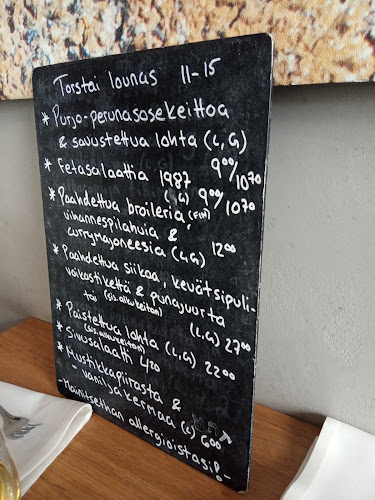 Torstai lounas 11-15
* Purjo-perunasosekeittoa
& savustettua lohta (L,G)
9⁰⁰/10⁷⁰
* Fetasalaattia 1987
(L,G) 9⁰⁰/10⁷⁰
* Paahdettua broileria (FIN)
vihannespilahvia &
currymajoneesia (L,G) 12⁰⁰
* Paahdettua siikaa, kevätsipuli-
voikastiketta & punajuurta
tai (sis. alkukeiton) (L,G) 27⁰⁰
* Paistettua lohta (L,G) 22⁰⁰
(sis. alkukeiton)
* Sivusalaatti 4,20
* Mustikkapiirasta &
vaniljakermaa (L) 6⁰⁰
- Mainitsethan allergioistasi!-